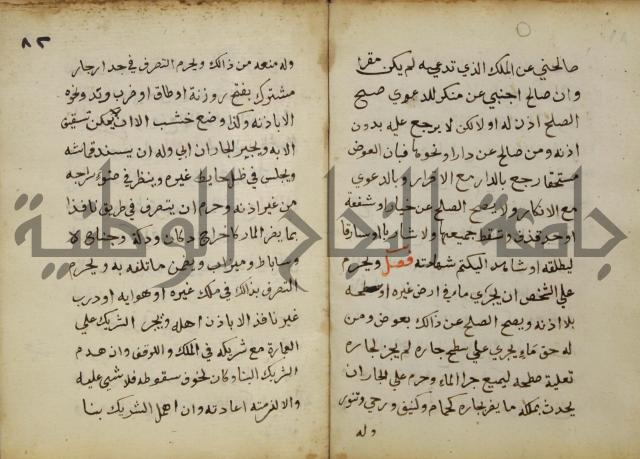 صالحني عن الملك الذي تدعيه لم يكن مقرا
وان صالح اجنبي عن منكر للدعوي صح
الصلح اذن له او لا لكن لا يرجع عليه بدون
اذنه ومن صالح عن دار او نحوها فبان العوض
مستحقا رجع بالدار مع الاقرار وبالدعوي
مع الانكار ولا يصح الصلح عن خيار او شفعة
او حد قذف وتسقط جميعها ولا شاربا او سارقا
ليطلقه او شاهدا ليكتم شهادته فصل ويحرم
علي الشخص ان يجري ماء في ارض غيره او سطحه
بلا اذنه ويصح الصلح عن ذالك بعوض ومن
له حق ماء يجري علي سطح جاره لم يجز لجاره
تعلية سطحه ليمنع جرا الماء وحرم علي الجار ان
يحدث بملكه ما يضر بجاره كحمام وكنيف ورحي وتنور
وله
٨٢
وله منعه من ذالك ويحرم التصرف في جدار جار
مشترك بفتح روزنة او طاق او ضرب وتد ونحوه
الا باذنه وكذا وضع خشب الا ان لا يمكن تسقيف
الا به ويجبر الجار ان ابي وله ان يسند قماشه
ويجلس في ظل حايط غيره وينظر في ضوء سراجه
من غير اذنه وحرم ان يتصرف في طريق نافذ
بما يضر المار كاخراج دكان ودكة وجناح
وساباط وميزاب ويضمن ما تلفه به ويحرم
التصرف بذالك في ملك غيره او هوايه او درب
غير نافذ الا باذن اهله ويجبر الشريك علي
العمارة مع شريكه في الملك والوقف وان هدم
الشريك البنا وكان لخوف سقوطه فلا شي عليه
والا لزمته اعادته وان اهمل الشريك بنا
جامعة النجاح الوطنية